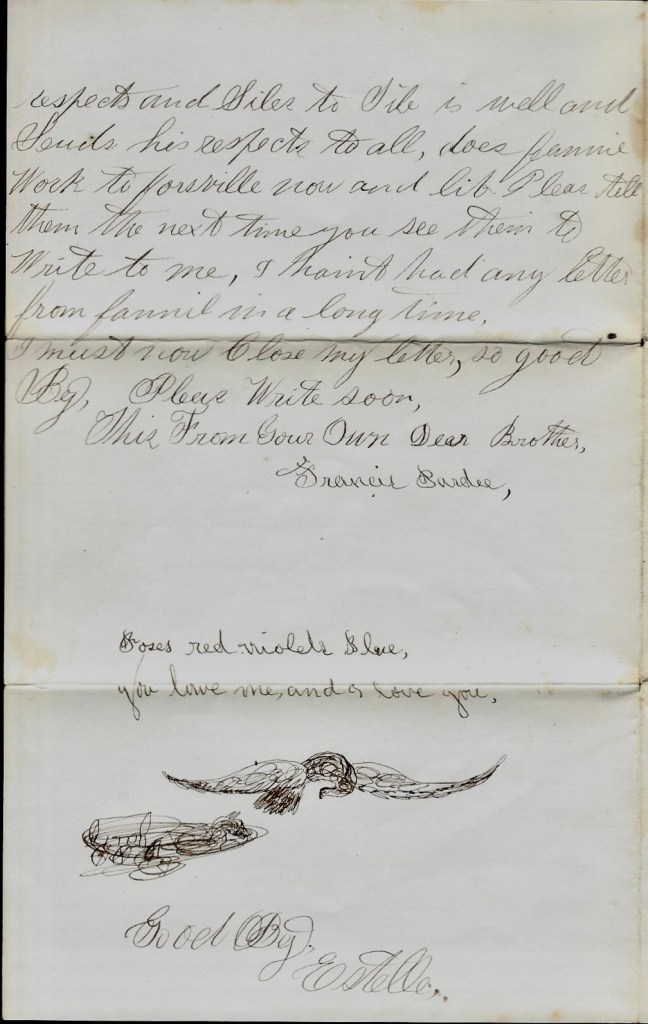 respects and Siles to Tile is well and
Sends his respects to all, does fannie
Work to forsville now and lib Pleas tell
them the next time you see them to
Write to me, I haint had any letter
from fannil in a long time,
I must now Close my letter, so good
By, Pleas Write soon,
This From Your Own Dear Brother,
Francis Pardee,
Roses red violets Blue,
you love me, and I love you,
Good By,
Estella,